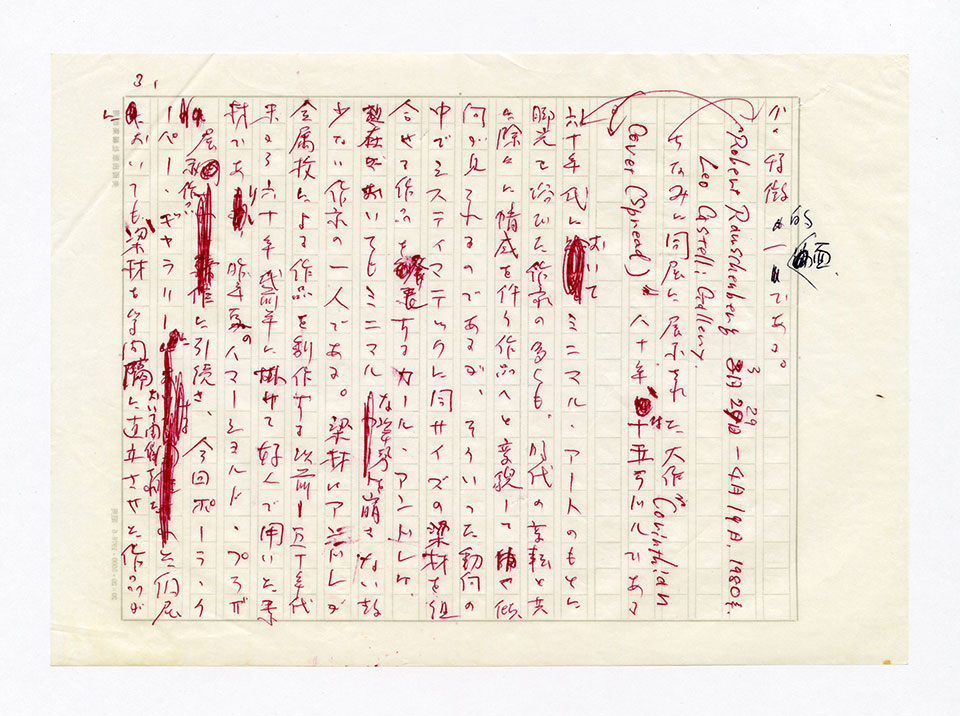 3
が特徴的であ る。
画
Robert Rauschenberg 3月29日-4月19日, 1980年
Leo Castelli Gallery
ちなみに同展に展示された大作"Corinthian
Cover (Spread)" 八十年 は十五万ドルであ
六十年代において ミニマル・アートのもとに
脚光を浴びた作家の多くも、時代の変転と共
に除々に情感を伴う作品へと変貌して 傾
向が見られるのであるが、そういった動向の
中でシステイマテックに同サイズの梁材を組
合せて作品を発表するカール・アンドレは、
現在においてもミニマルな姿勢を崩さない数
少ない作家の一人である。梁材はアンドレが
金属板による作品を制作する以前 五十年代
末から六十年代前半に掛けて好んで用いた素
材であり、昨年夏のハマーショルド・プラザ
展 新作 に引続き、今回ポーラ・ク
ーパー・ギャラリー において開催された 個展
においても梁材を等間隔に直立させた作品が